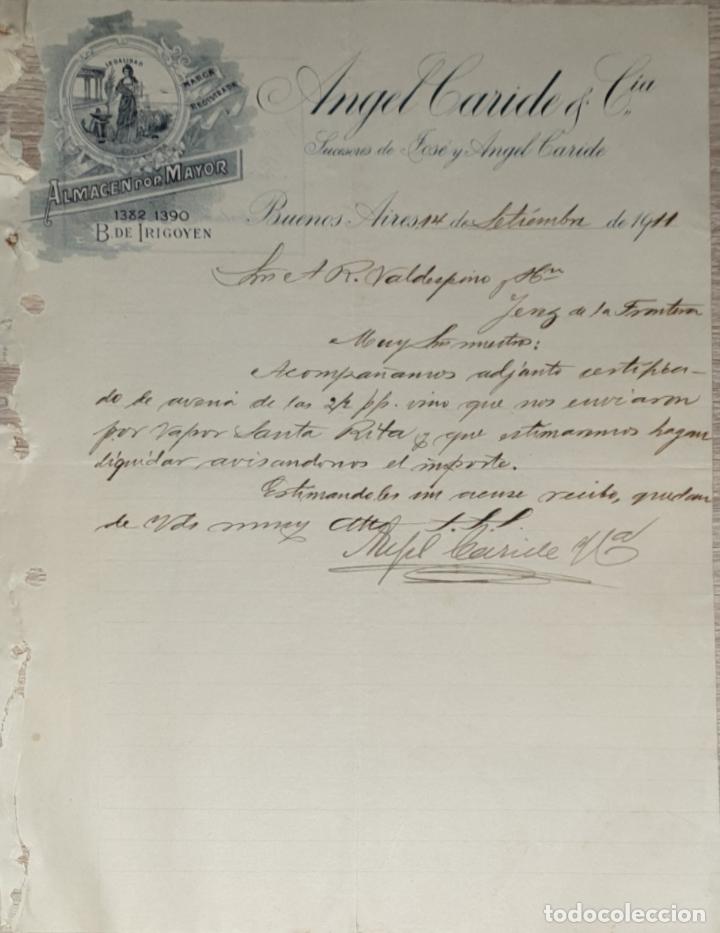 LEGALIDAD
MARCA
REGISTRADA
ALMACEN POR MAYOR
1382 1390
B. DE IRIGOYEN
Angel Caride & Cia
Sucesores de José y Angel Caride
Buenos Aires 14 de Setiembre de 1911
A. R. Valdespino y Hno
Jerez de la Frontera
Muy Sres nuestros:
Acompañamos adjunto certifica-
do de averia de las 2/2 pp. vino que nos enviaron
por vapor Santa Rita & que estimaremos hagan
liquidar avisandonos el importe.
Estimandoles un acuse recibo, quedan
de Vds muy Attos S.S.S.
Angel Caride & Ca
todocoleccion